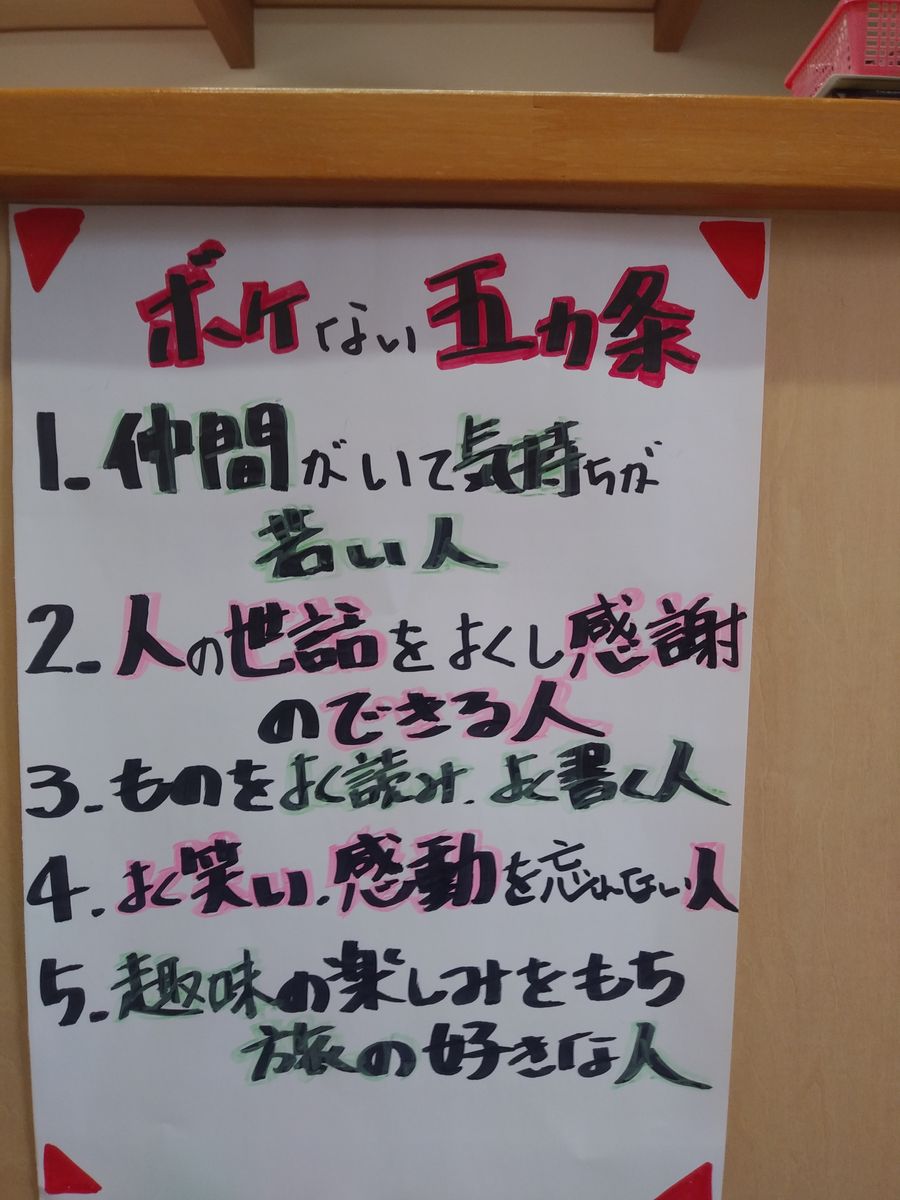 ボケない五カ条
1. 仲間がいて気持ちが
若い人
2. 人の世話をよくし感謝
のできる人
3. ものをよく読み、よく書く人
4. よく笑い、感動を忘れない人
5. 趣味の楽しみをもち
旅の好きな人